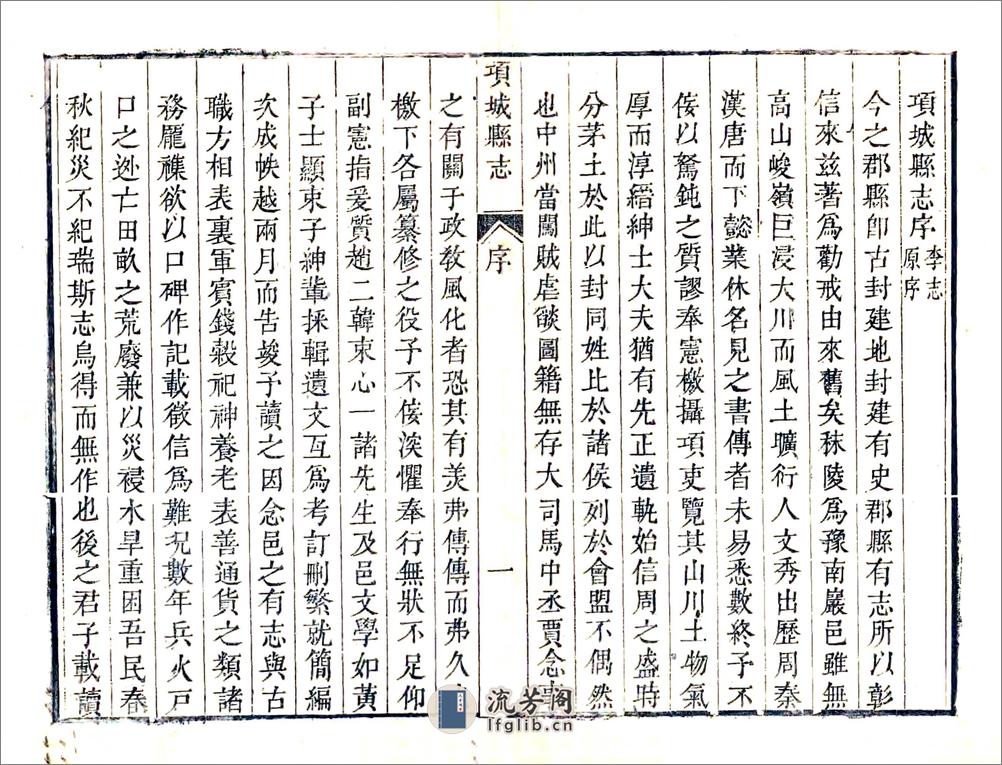 項城縣志序 李志原序
今之郡縣卽古封建地封建有史郡縣有志所以彰
信來兹著爲勸戒由來舊矣秣陵爲豫南巖邑雖無
高山峻嶺巨浸大川而風土壙衍人文秀出歷周秦
漢唐而下懿業休名見之書傳者未易悉數終予不
佞以駑鈍之質謬奉憲檄攝項吏覽其山川土物氣
厚而淳縉紳士大夫猶有先正遺軌始信周之盛時
分茅土於此以封同姓比於諸侯列於會盟不偶然
也中州當闖賊虐燄圖籍無存大司馬中丞賈念
項城縣志 序 一
之有關于政敎風化者恐其有美弗傳傳而弗久
檄下各屬纂修之役予不佞深懼奉行無狀不足仰
副憲指爰質趙二韓束心一諸先生及邑文學如黃
子士顯束子紳輩採輯遺文互爲考訂刪繁就簡編
次成帙越兩月而告竣予讀之因念邑之有志與古
職方相表裏軍賓錢穀祀神養老表善通貨之類諸
務龐襍欲以口碑作記載徵信爲難況數年兵火戸
口之逊亡田畝之荒廢兼以災祲水旱重困吾民春
秋紀災不紀瑞斯志烏得而無作也後之君子載讀
流芳阁
lfglib.cn